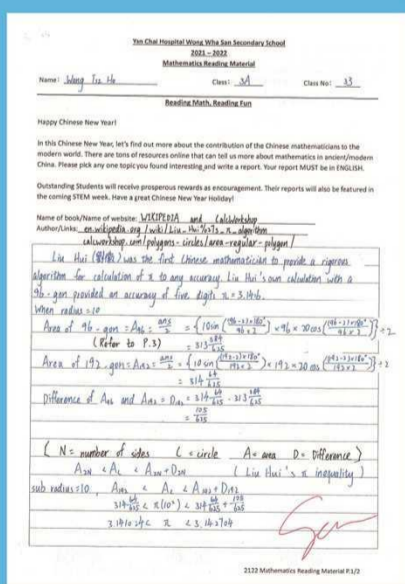 Yan Chai Hospital Wong Wha San Secondary School
2021 – 2022
Mathematics Reading Material
Name: Wong Tsz Ho Class: 3A Class No: 33
Reading Math, Reading Fun
Happy Chinese New Year!
In this Chinese New Year, let's find out more about the contribution of the Chinese mathematicians to the
modern world. There are tons of resources online that can tell us more about mathematics in ancient/modern
China. Please pick any one topic you found interesting and write a report. Your report MUST be in ENGLISH.
Outstanding Students will receive prosperous rewards as encouragement. Their reports will also be featured in
the coming STEM week. Have a great Chinese New Year Holiday!
Name of book/Name of website: WIKIPEDIA and Calcworkshop
Author/Links: en.wikipedia.org/wiki/Liu_Hui%27s_π_algorithm
calcworkshop.com/polygons-circles/area-regular-polygon/
Liu Hui (劉徽) was the first Chinese mathematician to provide a rigorous
algorithm for calculation of π to any accuracy. Liu Hui's own calculation with a
96-gon provided an accuracy of five digits π≈3.1416.
When radius = 10
Area of 96-gon = A96 = = {10sin((96-2)×180°/96×2) × 96 × 20cos((96-2)×180°/96×2)} ÷ 2
(Refer to P.3) = 313 584/625
Area of 192-gon = A192 = = {10sin((192-2)×180°/192×2) × 192 × 20cos((192-2)×180°/192×2)} ÷ 2
= 314 64/625
Difference of A96 and A192 = D192 = 314 64/625 - 313 584/625
= 105/625
(N = number of sides C = circle A = area D = Difference)
A2N < AC < A2N + D2N (Liu Hui's π inequality)
sub radius = 10, A192 < AC < A192 + D192
314 64/625 < π(10²) < 314 64/625 + 105/625
3.141024 < π < 3.142704
2122 Mathematics Reading Material P.1/2